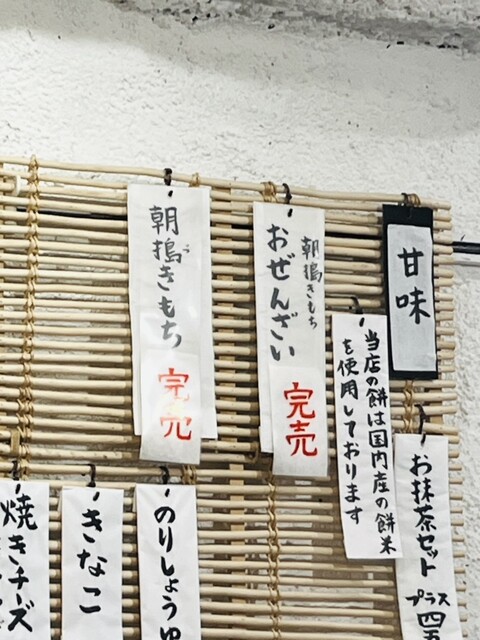 甘味
当店の餅は国内産の餅米
を使用しております
朝搗きもち
おぜんざい
完売
朝搗きもち
完売
お抹茶セット
プラス
のりしょうゆ
きなこ
焼きチーズ